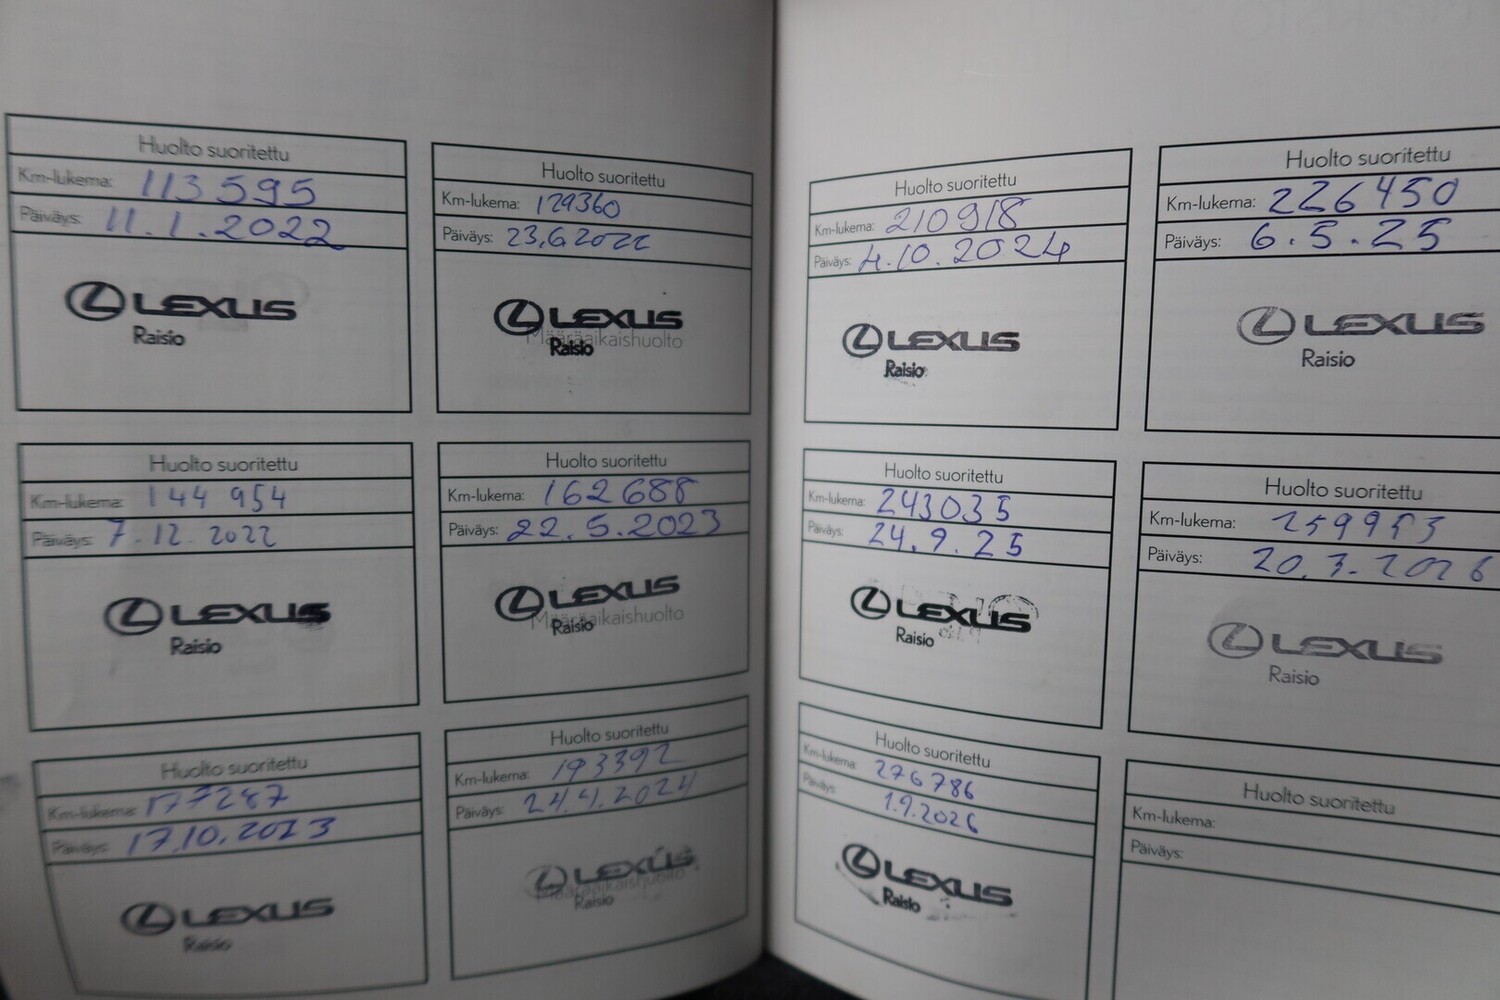 Huolto suoritettu
Km-lukema: 113595
Päiväys: 11.1.2022
LEXUS
Raisio
Huolto suoritettu
Km-lukema: 129360
Päiväys: 23.6.2022
LEXUS
Määräaikaishuolto
Raisio
Huolto suoritettu
Km-lukema: 144 954
Päiväys: 7.12.2022
LEXUS
Raisio
Huolto suoritettu
Km-lukema: 162688
Päiväys: 22.5.2023
LEXUS
Määräaikaishuolto
Raisio
Huolto suoritettu
Km-lukema: 177287
Päiväys: 17.10.2023
LEXUS
Raisio
Huolto suoritettu
Km-lukema: 193392
Päiväys: 24.4.2024
LEXUS
Määräaikaishuolto
Raisio
Huolto suoritettu
Km-lukema: 210918
Päiväys: 4.10.2024
LEXUS
Raisio
Huolto suoritettu
Km-lukema: 226450
Päiväys: 6.5.25
LEXUS
Raisio
Huolto suoritettu
Km-lukema: 243035
Päiväys: 24.9.25
LEXUS
Raisio
Huolto suoritettu
Km-lukema:
Päiväys: 20.3.2026
LEXUS
Raisio
Huolto suoritettu
Km-lukema: 276786
Päiväys: 1.9.2026
LEXUS
Raisio
Huolto suoritettu
Km-lukema:
Päiväys: